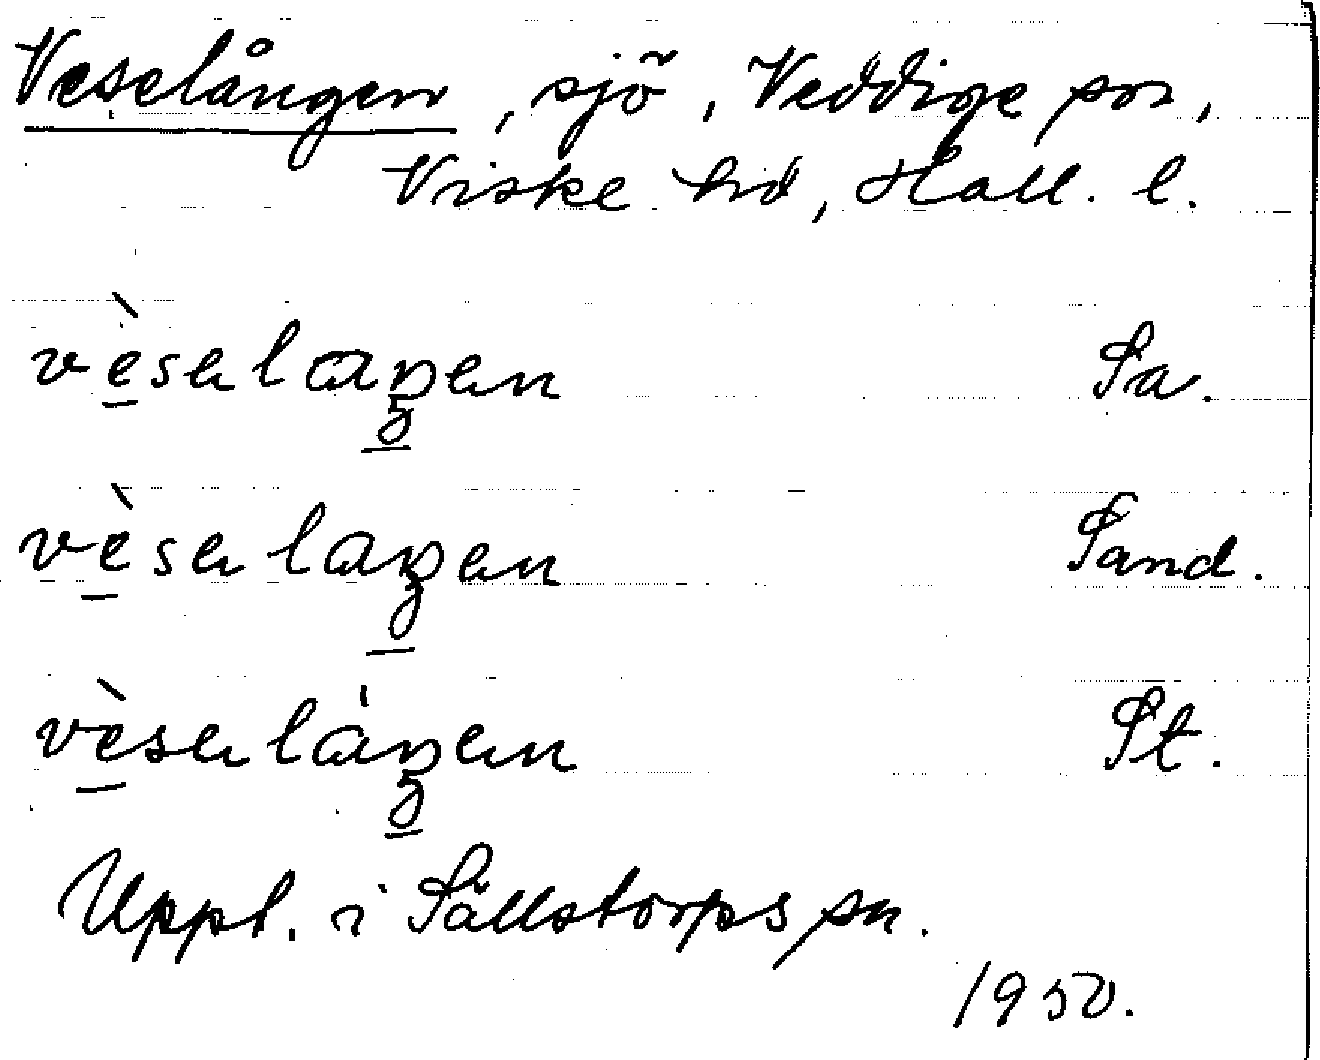 Veselången, sjö, Veddige sn,
Viske hd, Hall. l.
vèselaŋen Sa.
vèselaŋen Sand.
vèseláŋen St.
Uppt. i Sällstorps sn.
1950.